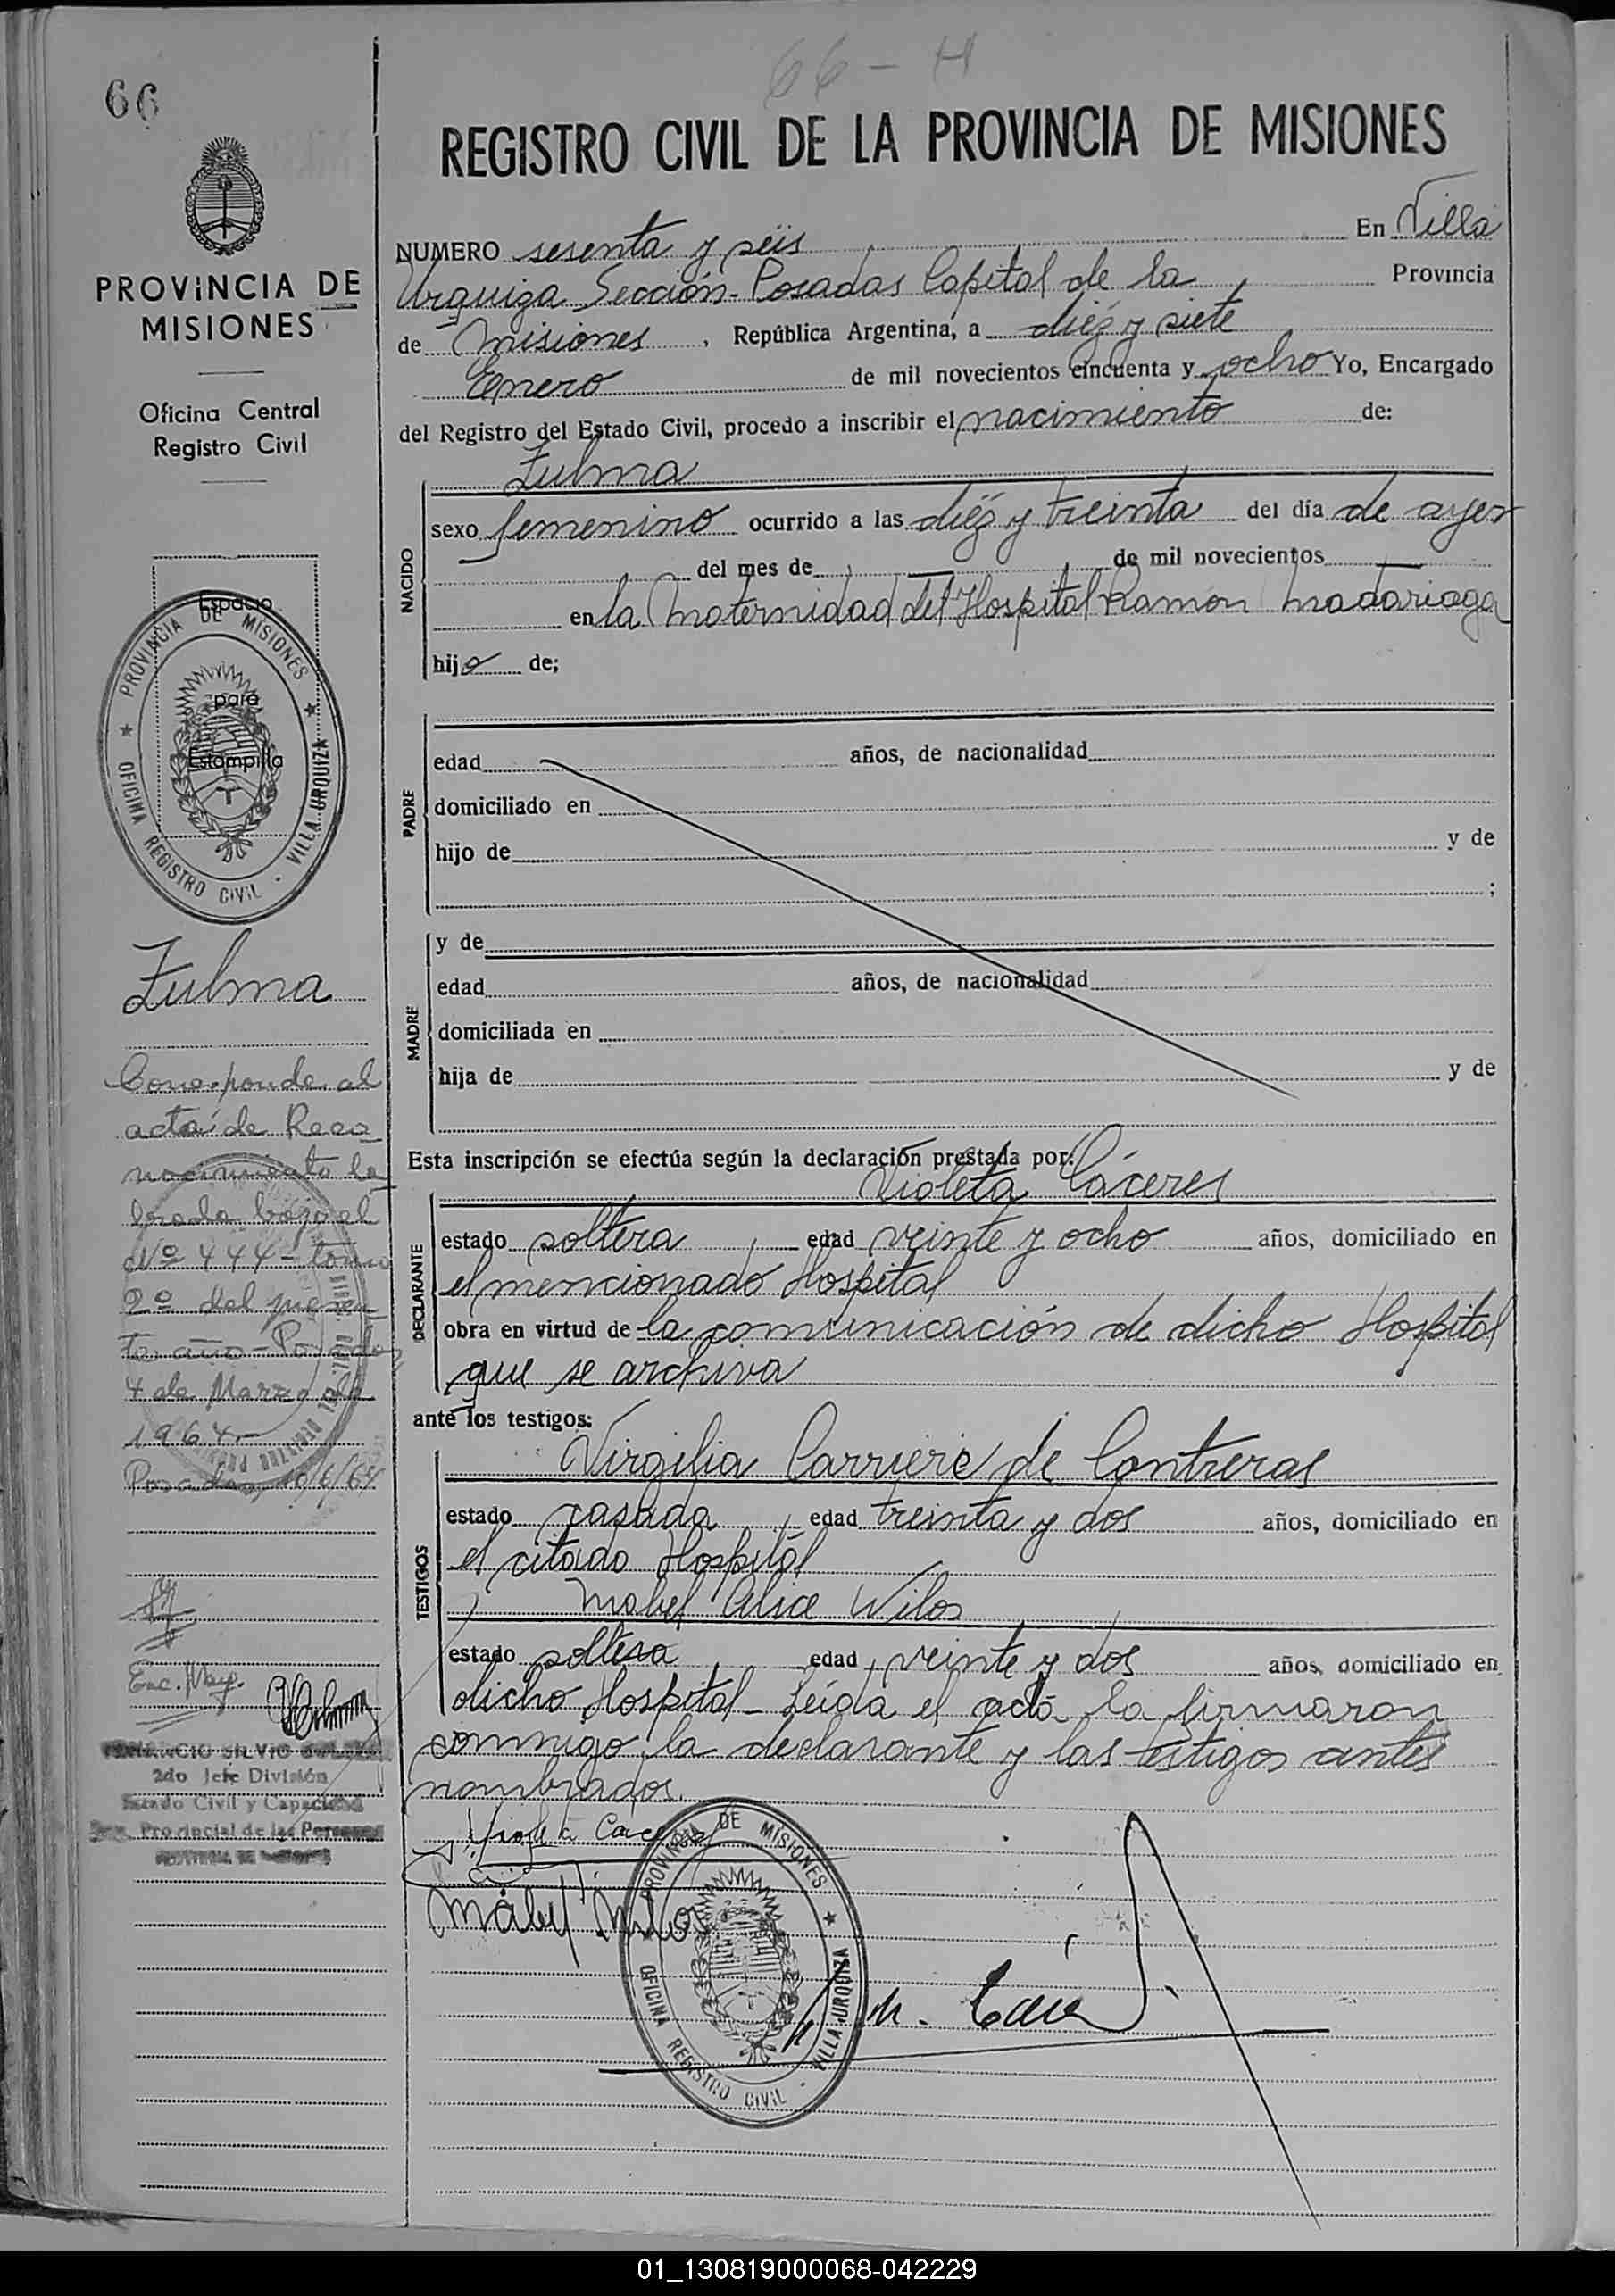 66 - H
66
REGISTRO CIVIL DE LA PROVINCIA DE MISIONES
PROVINCIA DE
MISIONES
Oficina Central
Registro Civil
Espacio
para
Estampilla
PROVINCIA DE MISIONES
OFICINA REGISTRO CIVIL - VILLA URQUIZA
Zulma
Corresponde al
acta de Reco
nocimiento la
brada bajo el
Nº 444 - tomo
2º del presen
te año - Posadas
4 de Marzo de
1964.-
Posadas, 10/6/64
Enc. May.
2do Jefe División
Estado Civil y Capacidad
Provincial de las Personas
NUMERO sesenta y seis En Villa
Urquiza Sección - Posadas Capital de la Provincia
de Misiones, República Argentina, a diéz y siete
Enero de mil novecientos cincuenta y ocho Yo, Encargado
del Registro del Estado Civil, procedo a inscribir el nacimiento de:
NACIDO
Zulma
sexo femenino ocurrido a las diéz y treinta del día de ayer
del mes de de mil novecientos
en la Maternidad del Hospital Ramon Madariaga
hija de;
PADRE
edad años, de nacionalidad
domiciliado en
hijo de y de
;
MADRE
y de
edad años, de nacionalidad
domiciliada en
hija de y de
Esta inscripción se efectúa según la declaración prestada por:
DECLARANTE
Violeta Cáceres
estado soltera, edad veinte y ocho años, domiciliado en
el mencionado Hospital
obra en virtud de la comunicación de dicho Hospital
que se archiva
ante los testigos:
TESTIGOS
Virgilia Carriere de Contreras
estado casada, edad treinta y dos años, domiciliado en
el citado Hospital
y Mabel Alice Wilos
estado soltera edad veinte y dos años, domiciliado en
dicho Hospital - Leída el acta la firmaron
conmigo la declarante y las testigos antes
nombrados.
Violeta Caceres
Mabel Wilos
PROVINCIA DE MISIONES
OFICINA REGISTRO CIVIL - VILLA URQUIZA
01_130819000068-042229